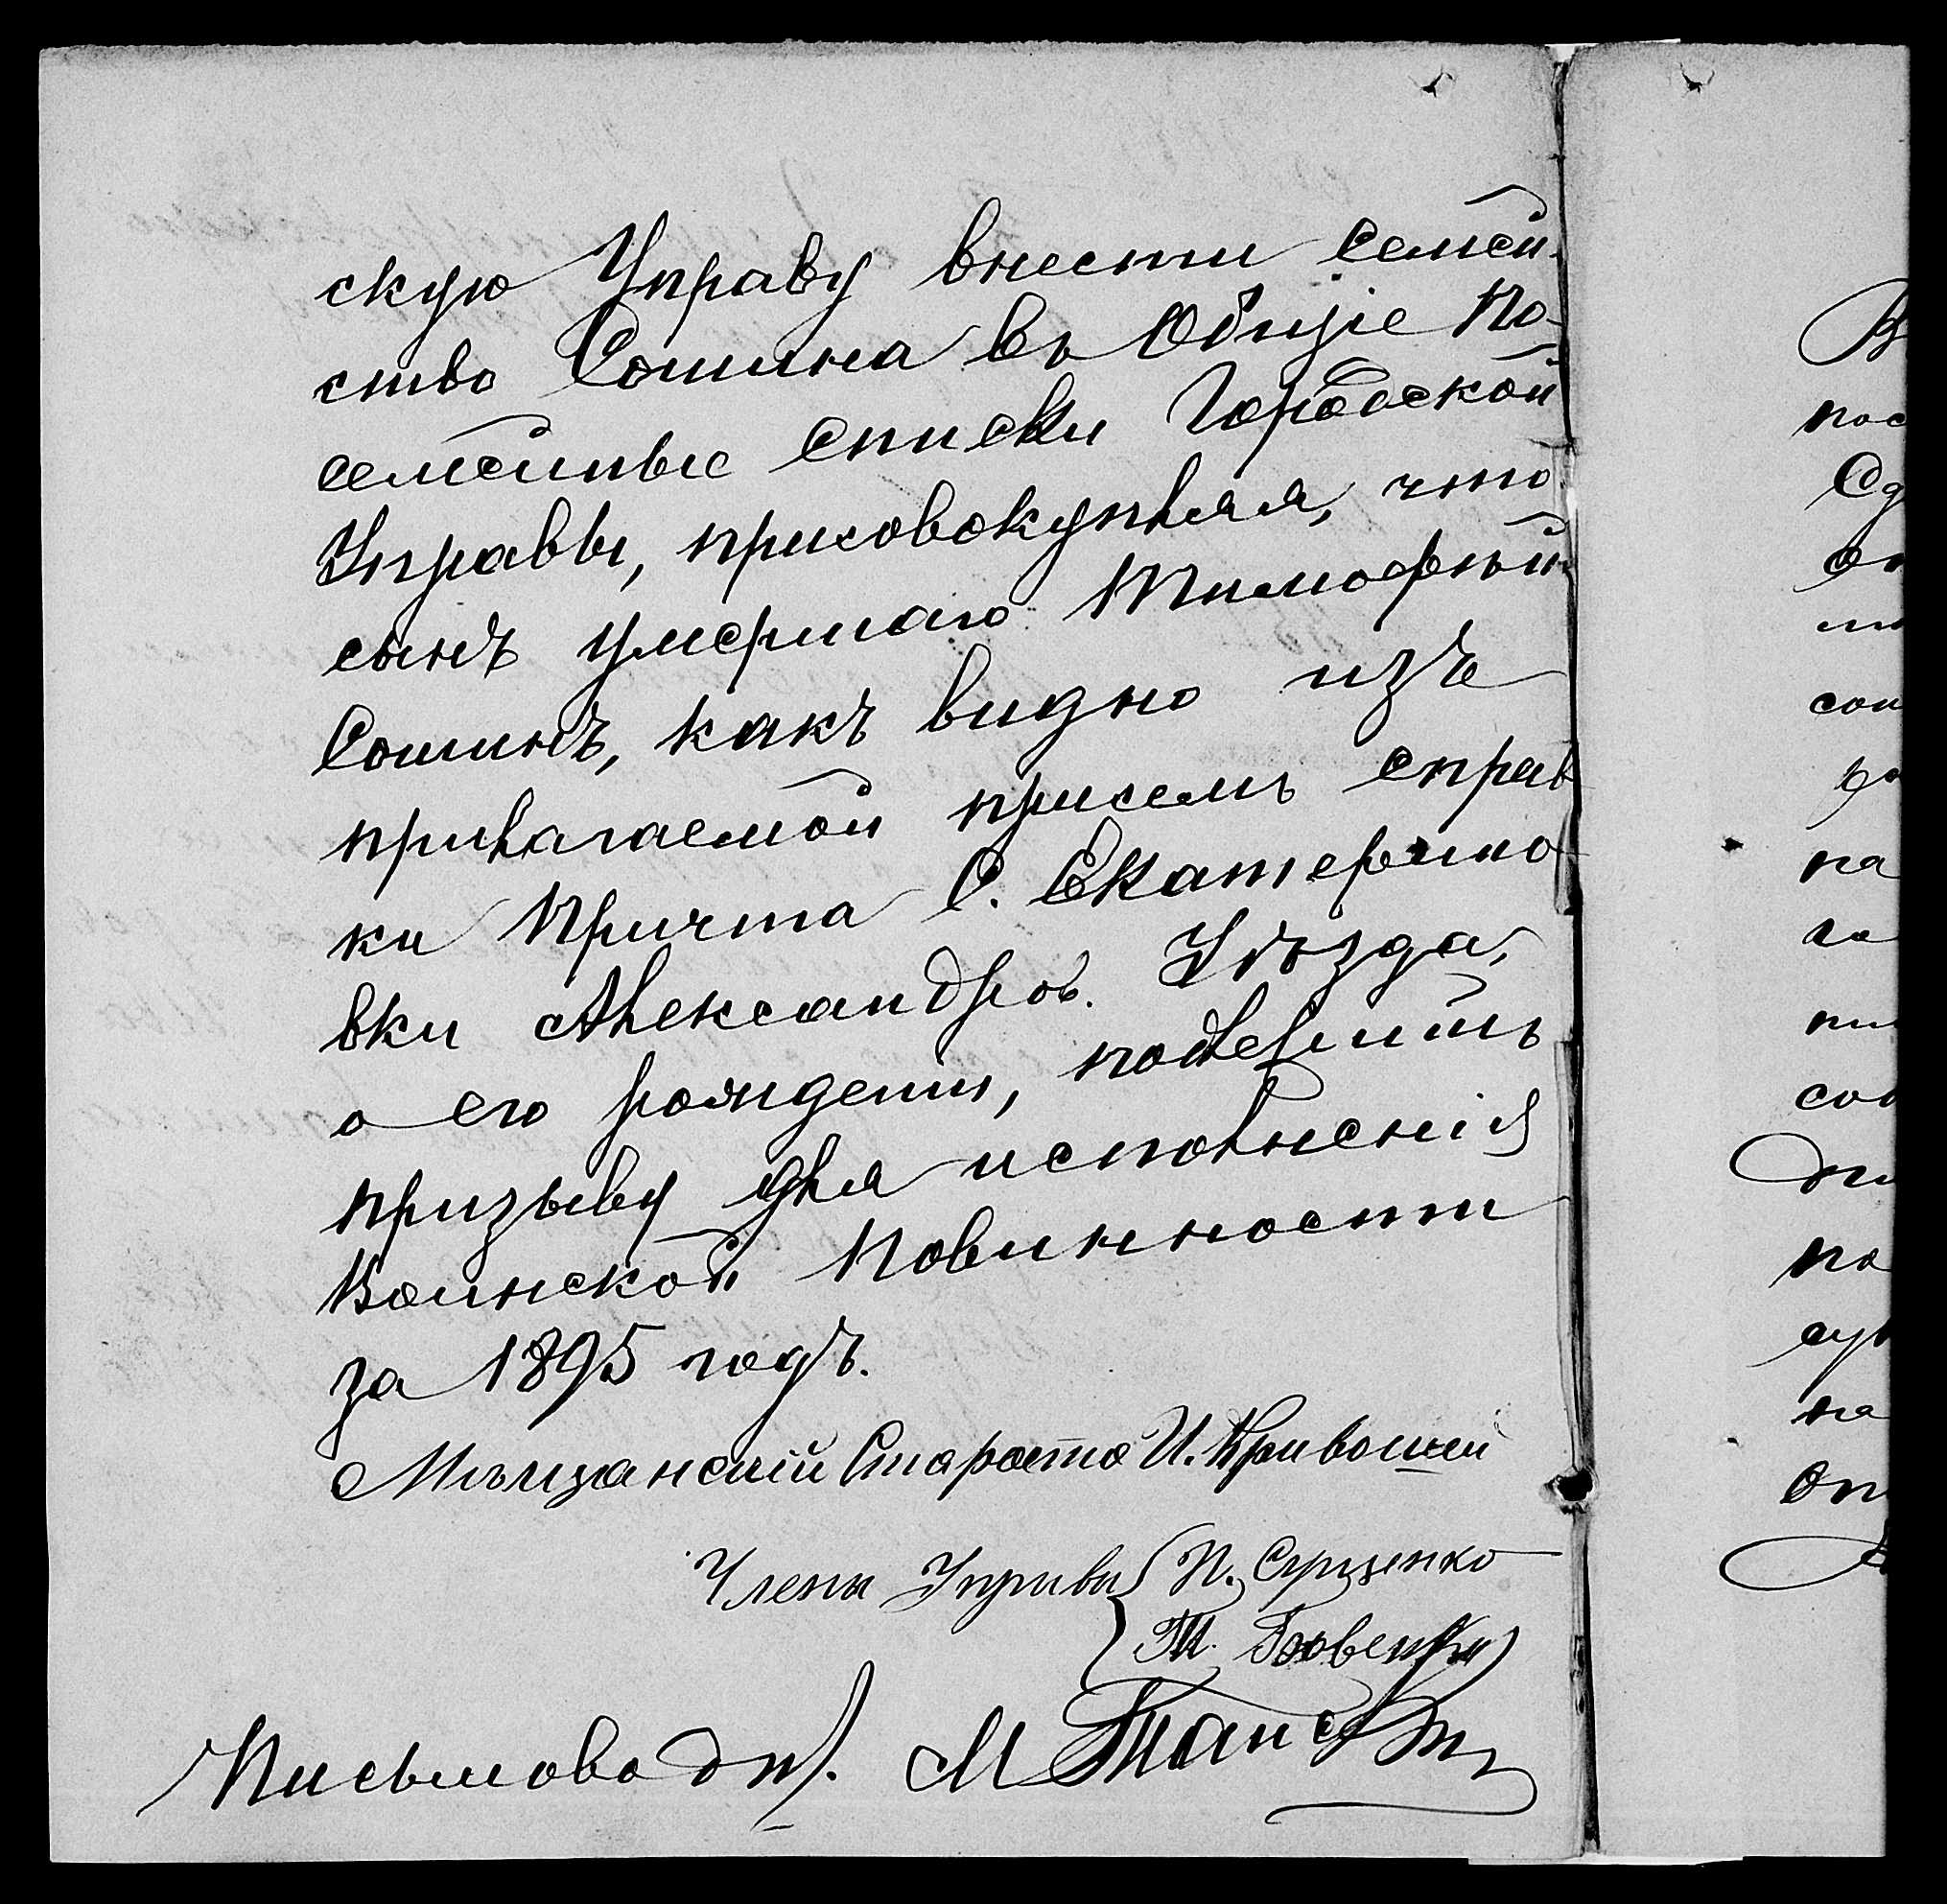 скую Управу внести семей-
ство Сошина въ Общіе По-
семейные списки Городской
Управы, присовокупляя, что
сынъ умершаго Тимофѣй
Сошинъ, какъ видно изъ
прилагаемой присемъ справ
ки Причта С. Екатерино
вки Александров. Уѣзда,
о его рожденіи, подлежитъ
призыву для исполненія
Воинской Повинности
за 1895 годъ.
Мѣщанскій Староста И. Кривошей
Члены Управы П. Сущенко
Т.
Письмовод. М
В
пос
Сд
он
со
на
го
пи
сов
по
су
на
Оп